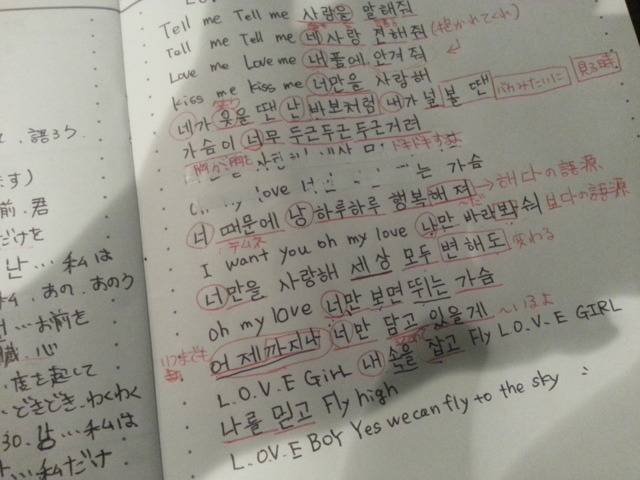 語ろう
前.君
だけを
난…私は
あの.あのう
お前を
心
度を起して
どきどき.わくわく
30. 남…私は
…私だけ
Tell me Tell me 사랑을 말해줘
Tall me Tell me 네 사랑 전해줘 (抱かれてくれ)
Love me Love me 내 품에 안겨줘
Kiss me Kiss me 너만을 사랑해
네가 웃을 땐 난 바보처럼 내가 널 볼 땐 バカみたいに 見る時
가슴이 너무 두근두근 두근거려
ドキドキする
my love 는 가슴
너 때문에 낭 하루하루 행복해져 → 해다の語源、
テムネ
I want you oh my love 남만 바래봐줘 보다の語源
너만을 사랑해 세상 모두 변해도 変わる
oh my love 너만 보면 뛰는 가슴
いつまでも 어제까지나 너만 담고 있을게 〜いるよ
L.O.V.E Girl 내 손을 잡고 Fly L.O.V.E GIRL
나를 믿고 Fly high
L.O.V.E BOY Yes we can fly to the sky